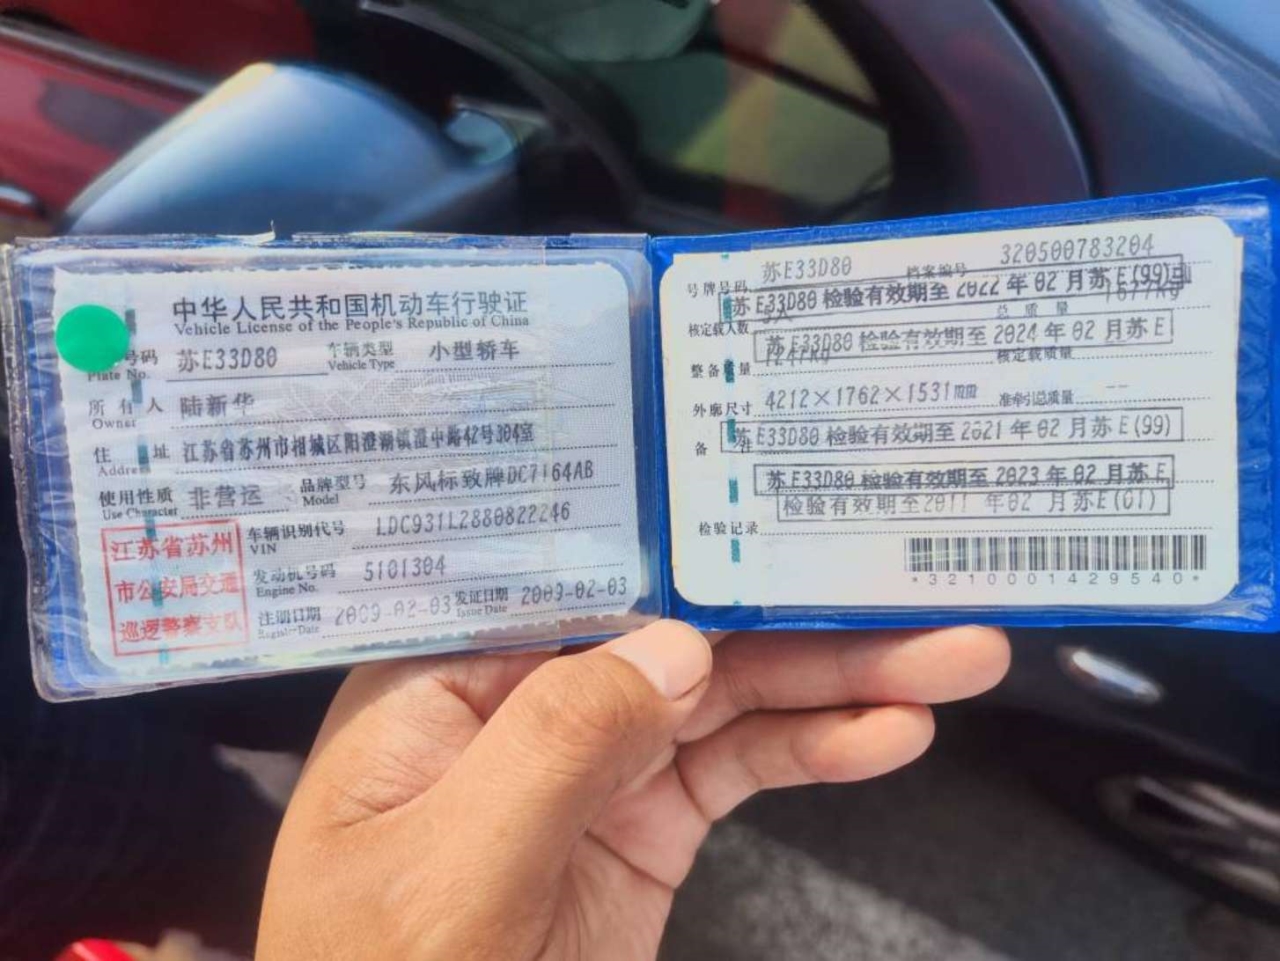 中华人民共和国机动车行驶证
Vehicle License of the People's Republic of China
号码 苏E33D80 车辆类型 小型轿车
Plate No. Vehicle Type
所有人 陆新华
Owner
住址 江苏省苏州市相城区阳澄湖镇澄中路42号304室
Address
使用性质 非营运 品牌型号 东风标致牌DC7164AB
Use Character Model
车辆识别代号 LDC931L2880822246
VIN
发动机号码 5101304
Engine No.
注册日期 2009-02-03 发证日期 2009-02-03
Register Date Issue Date
江苏省苏州
市公安局交通
巡逻警察支队
号牌号码 苏E33D80 档案编号 320500783204
苏E33D80 检验有效期至 2022 年 02 月苏E(99)
核定载人数 总质量
苏E33D80 检验有效期至 2024 年 02 月苏E
整备质量 核定载质量
外廓尺寸 4212×1762×1531mm 准牵引总质量 --
备注 苏E33D80 检验有效期至 2021 年 02 月苏E(99)
苏E33D80 检验有效期至 2023 年 02 月苏E
检验有效期至2011 年02 月苏E(01)
检验记录
*3210001429540*